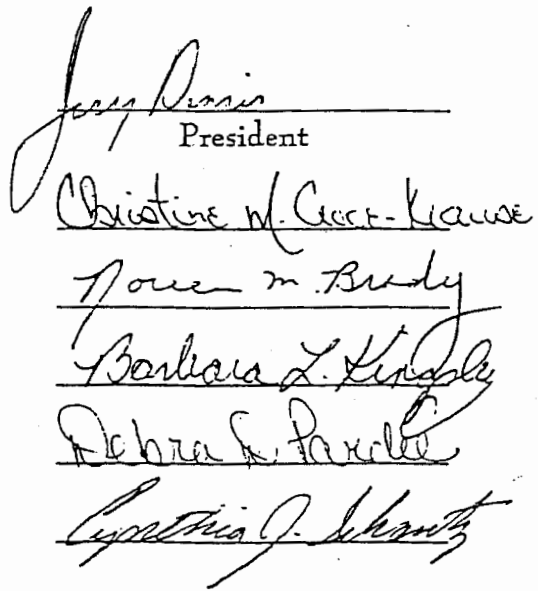 Jerry Dennis
President
Christine M. Croce-Krause
Noreen M. Brady
Barbara L. Kingsley
Debra L. Pardee
Cynthia J. Schmitz